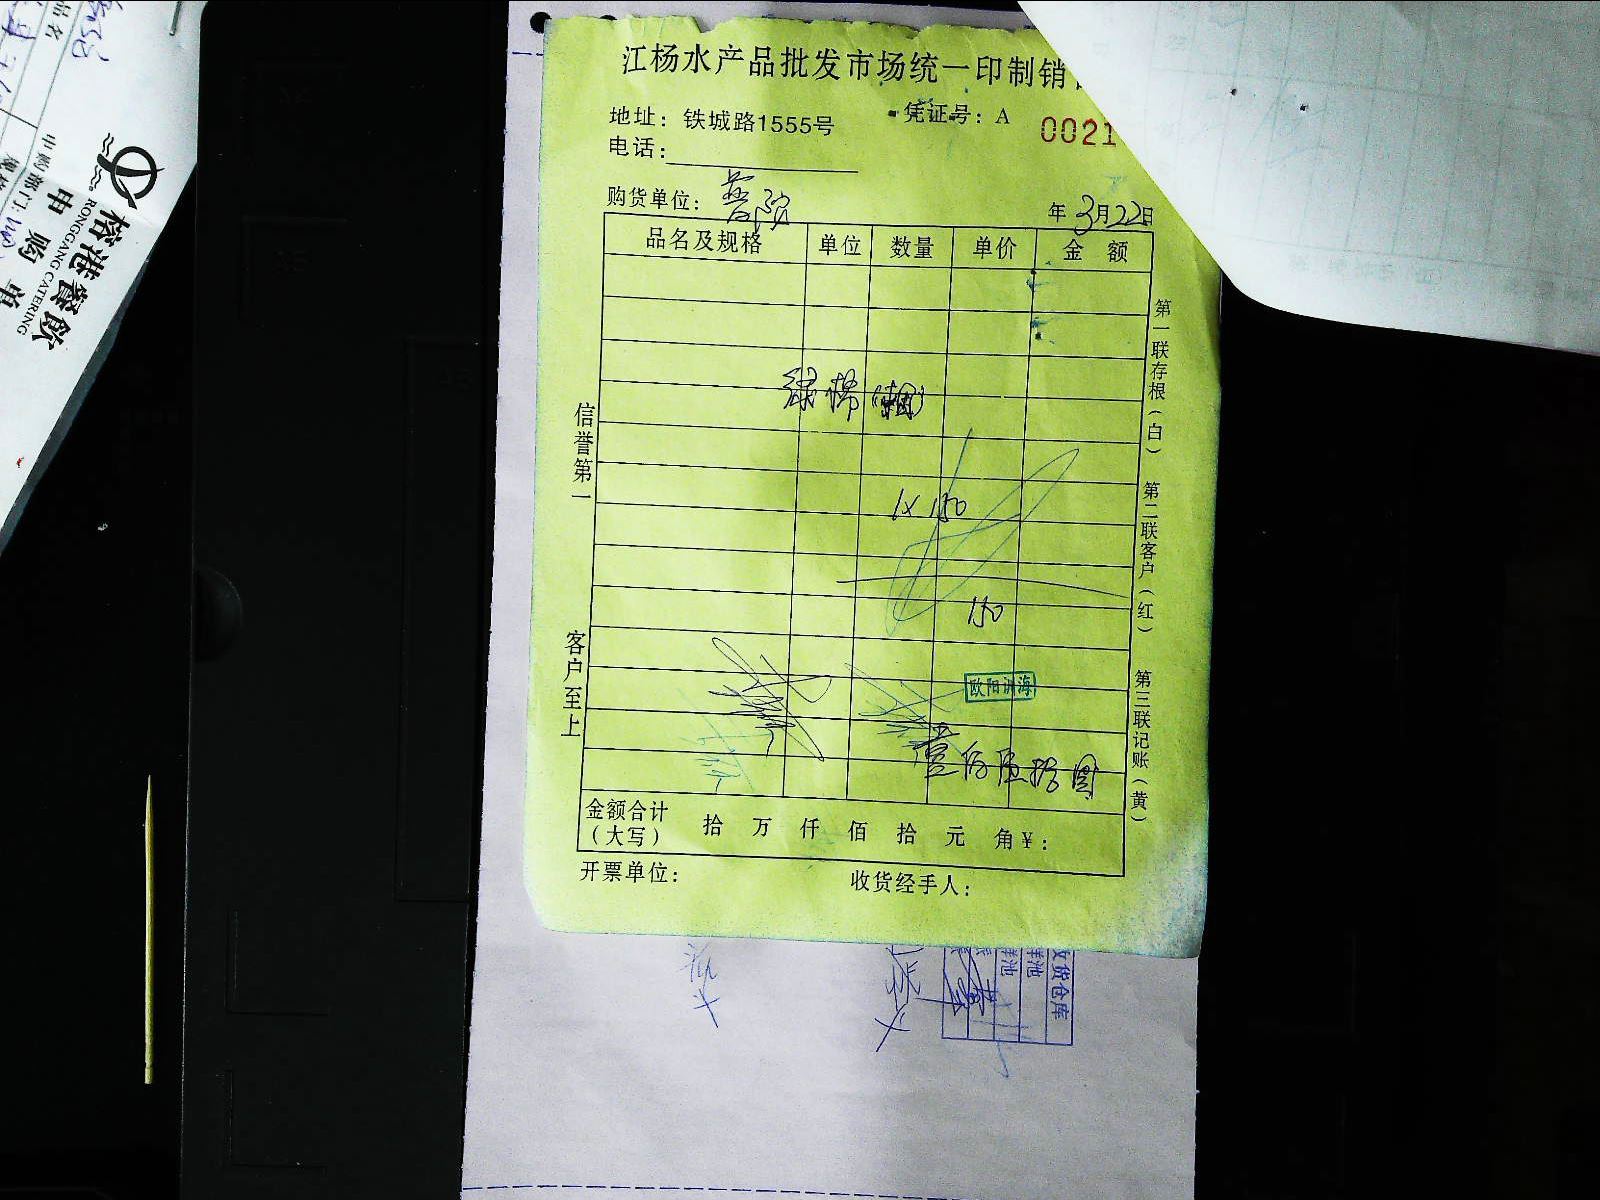 江杨水产品批发市场统一印制销
地址：铁城路1555号
凭证号：A 0021
电话：
购货单位：
年 3月22日
品名及规格 单位 数量 单价 金 额
1×150
150
欧阳 海
壹佰伍拾圆
金额合计（大写） 拾 万 仟 佰 拾 元 角 ¥：
开票单位： 收货经手人：
信誉第一
客户至上
第一联存根（白） 第二联客户（红） 第三联记账（黄）
收货仓库
品名
RONGGANG CATERING
申购单
申购部门：